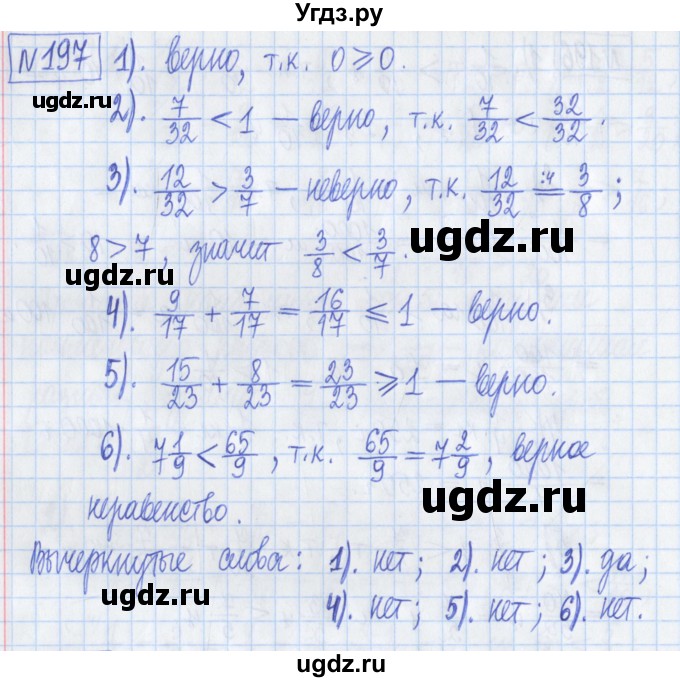 Угдз.ру
№197 1). верно, т.к. 0 ⩾ 0.
ugdz.ru ugdz.ru
2). 7/32 < 1 — верно, т.к. 7/32 < 32/32.
3). 12/32 > 3/7 — неверно, т.к. 12/32 :4= 3/8;
8 > 7, значит 3/8 < 3/7.
ugdz.ru ugdz.ru
4). 9/17 + 7/17 = 16/17 ⩽ 1 — верно.
5). 15/23 + 8/23 = 23/23 ⩾ 1 — верно.
6). 7 1/9 < 65/9, т.к. 65/9 = 7 2/9, верное
ugdz.ru
неравенство.
Вычеркнутые слова: 1). нет; 2). нет; 3). да;
ugdz.ru
4). нет; 5). нет; 6). нет.
ugdz.ru